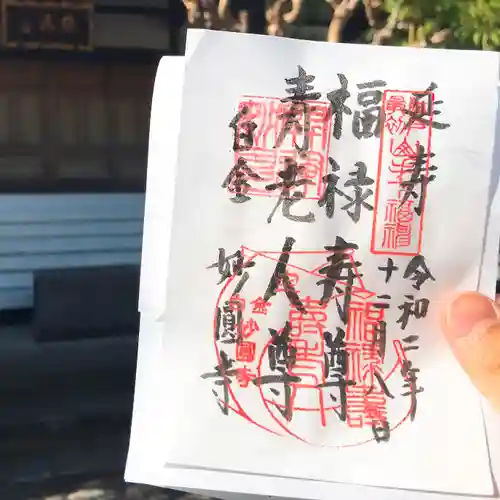 延寿
令和二年
十二月八日
福禄寿尊
寿老人尊
白金
妙圓寺